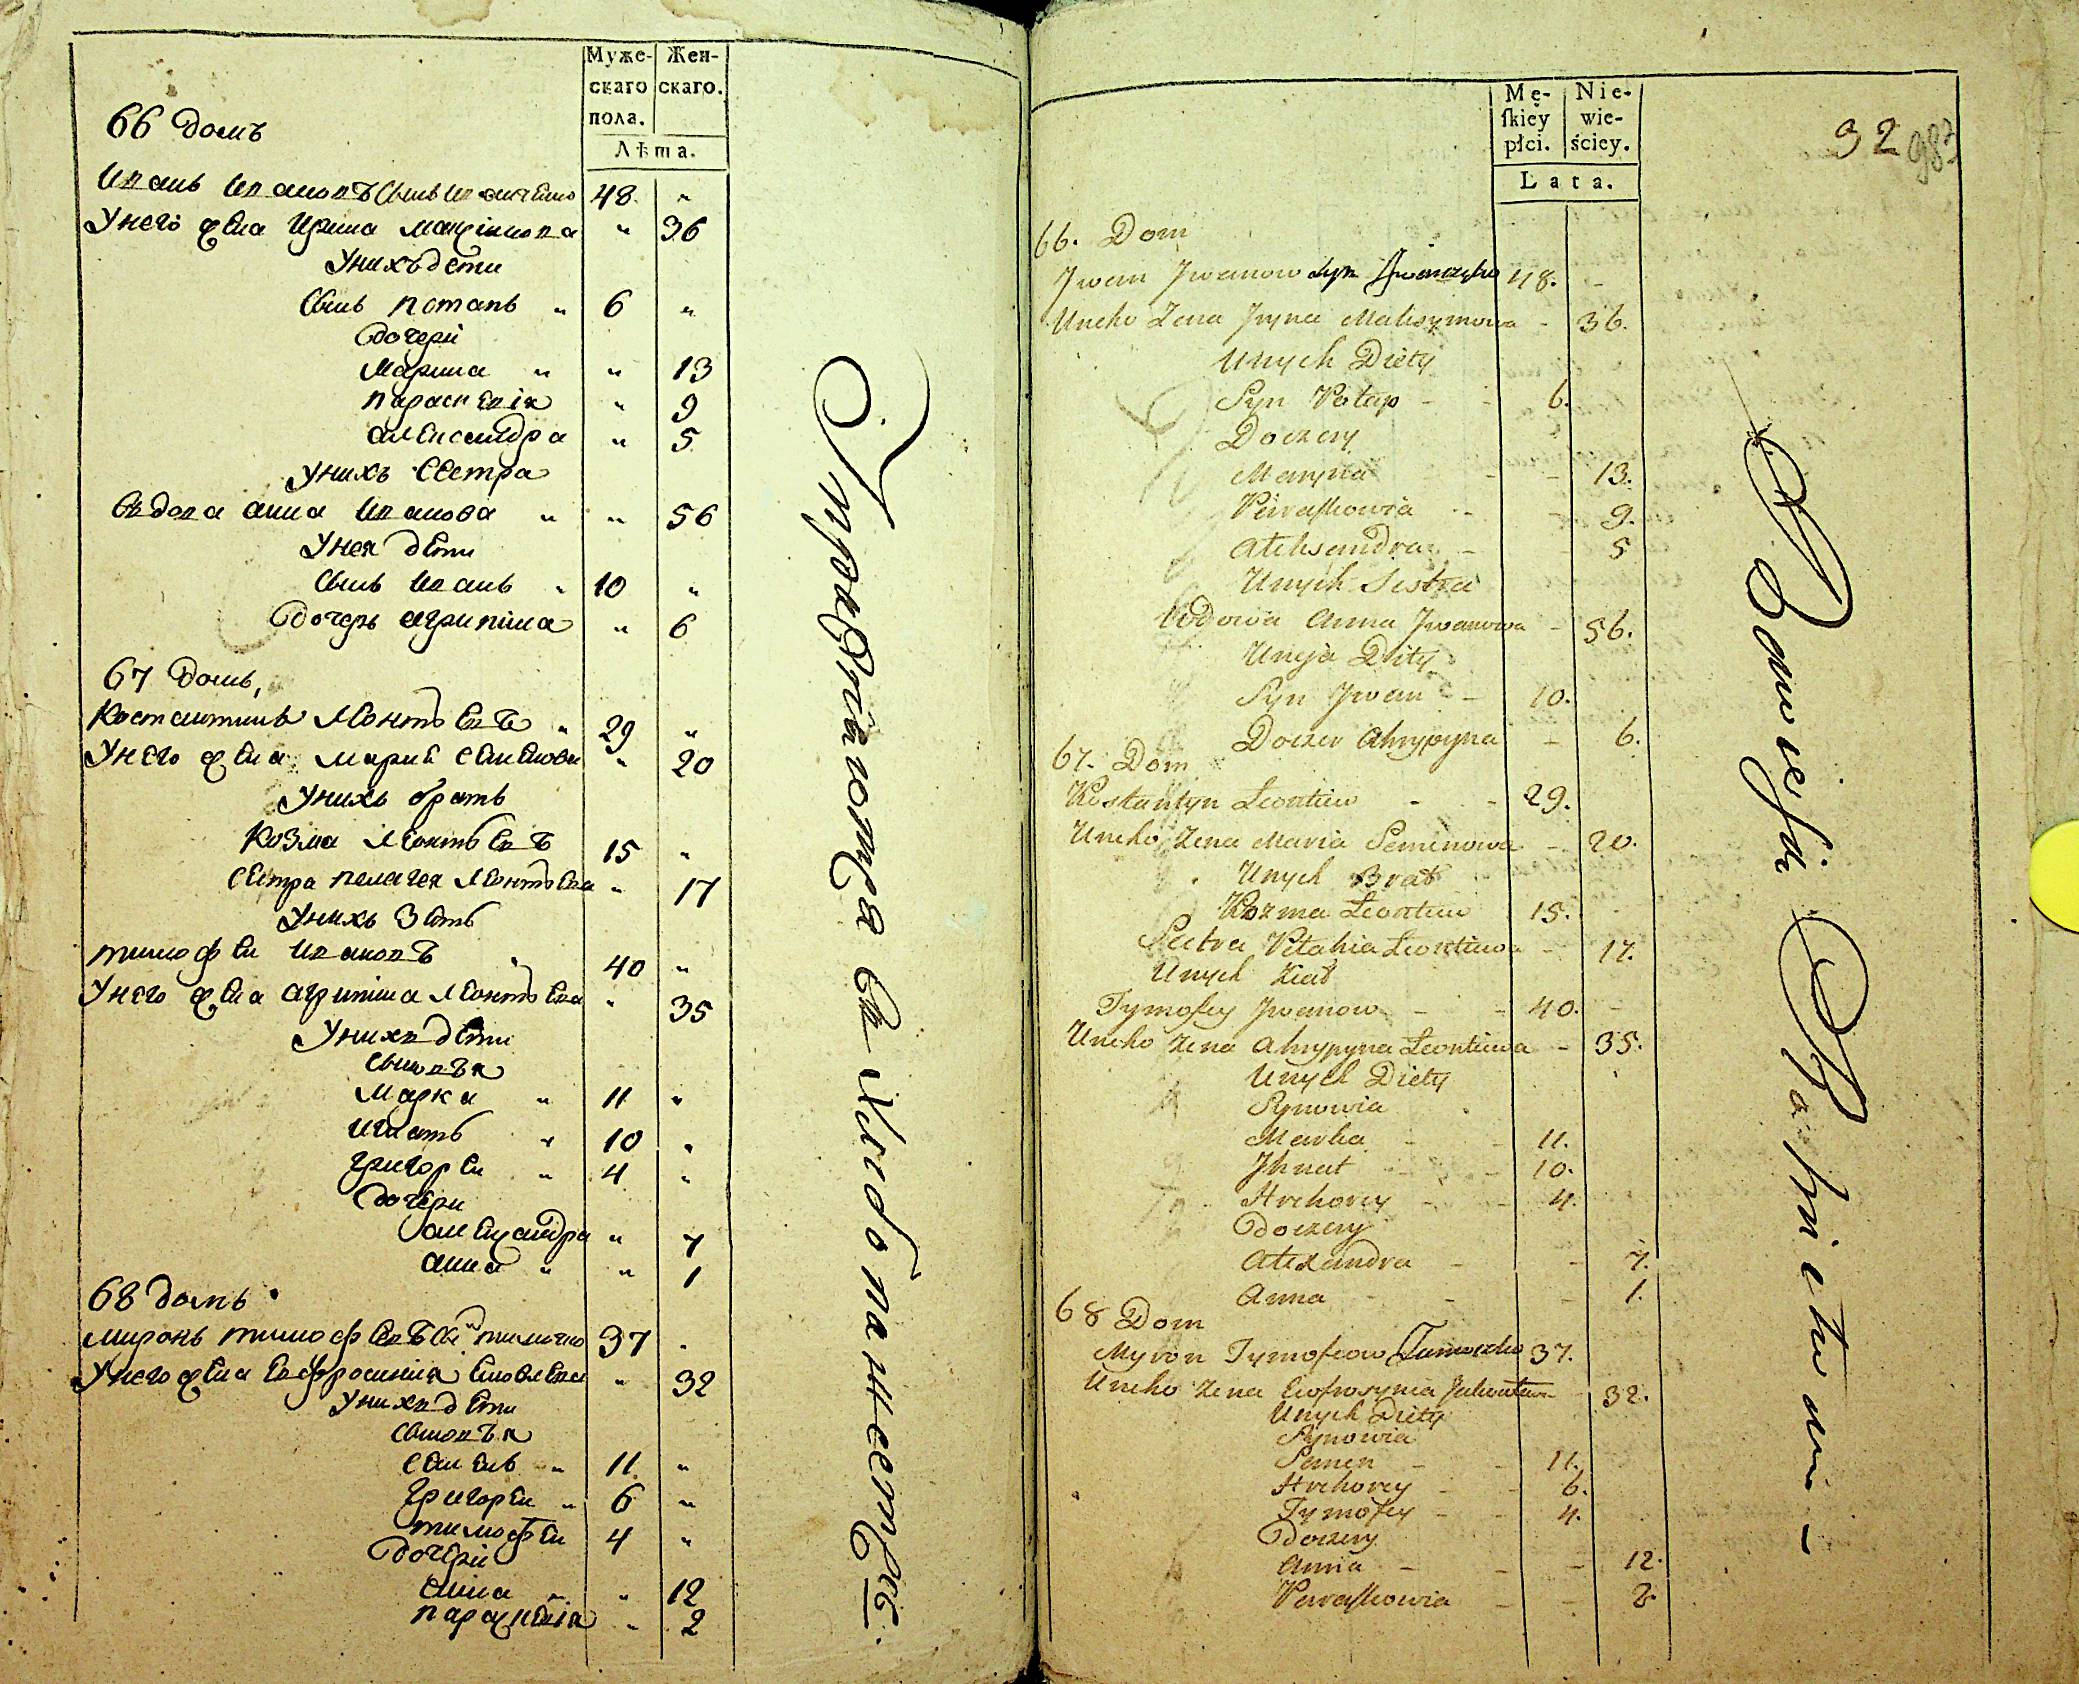 Муже- Жен-
скаго скаго.
пола.
Лѣта.
66 домъ
Иванъ Ивановъ сынъ 48 „
У него жена Ирина Максимова „ 36
У нихъ дети
Сынъ Потапъ „ 6 „
дочери
Марина „ „ 13
Параскевія „ 9
Александра „ 5
У нихъ сестра
Вдова Анна Иванова „ „ 56
У нея дети
Сынъ Иванъ „ 10 „
дочерь Агрипина „ 6
67 домъ,
Костантинъ Леонтьевъ „ 29 „
У него жена Мария Семенова „ 20
У нихъ братъ
Козма Леонтьевъ 15 „
Сестра Пелагея Леонтьева „ 17
У нихъ Зять
Тимофей Ивановъ 40 „
У него жена Агрипина Леонтьева „ 35
У нихъ дети
Сыновъя
Марки „ 11 „
Игнатъ „ 10 „
Григорей „ 4 „
дочери
Александра „ 7
Анна „ „ 1
68 домъ
Миронъ Тимофеевъ 37 „
У него жена Евфросинія „ 32
У нихъ дети
Сыновъя
Семенъ „ 11 „
Григорей „ 6 „
Тимофей 4 „
дочери
Анна „ „ 12
Параскевія „ 2
въ
Mę- Nie-
ſkiey wie-
płci. ściey.
Lata.
32
66. Dom
Jwan Jwanow syn 48. -
Uneho Zena Jryna Maksymowa - 36.
Unych Diety
Syn Potap - - 6.
Doczery
Maryna - - 13.
Paraſkowia - - 9.
Aleksandra - - 5
Unych Sestra
Wdowa Anna Jwanowa - 56.
Uneja Diety
Syn Jwan - 10.
Doczer Ahrypyna - 6.
67. Dom
Kostantyn Leontiew - - 29.
Uneho Zena Maria Semenowa - 20.
Unych Brat
Kozma Leontiew 15.
Sestra Pelahia Leontiewa - 17.
Unych Ziat
Tymofey Jwanow - - 40. -
Uneho Zena Ahrypyna Leontiewa - 35.
Unych Diety
Synowia
Marka - - 11.
Jhnat - - 10.
Hrehorey - - 4.
Doczery
Alexandra - - 7.
Anna - - - 1.
68 Dom
Myron Tymofeow 37.
Uneho Zena Ewfrosynia 32.
Unych Diety
Synowia
Semen - - 11.
Hrehorey - - 6.
Tymofey - - 4.
Doczery
Anna - - - 12.
Paraſkowia - - 2.